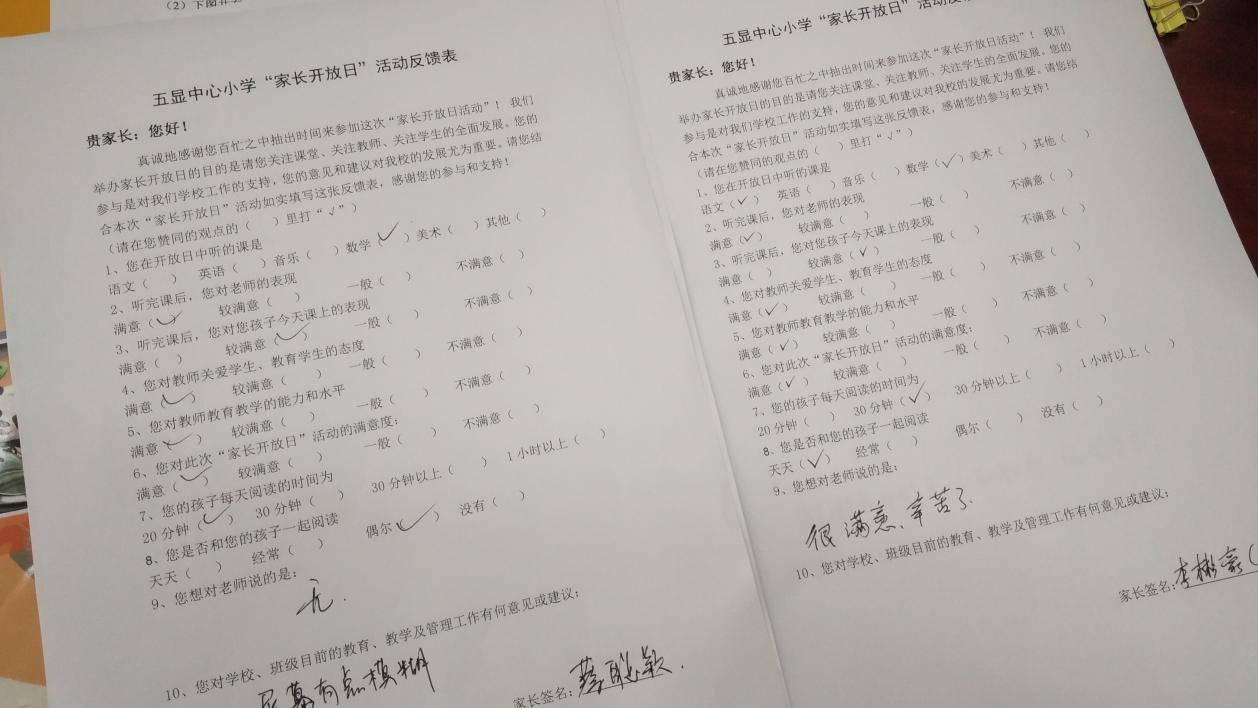 (2)下图
五显中心小学“家长开放日”活动反馈表
贵家长:您好!
真诚地感谢您百忙之中抽出时间来参加这次“家长开放日活动”! 我们
举办家长开放日的目的是请您关注课堂、关注教师、关注学生的全面发展。您的
参与是对我们学校工作的支持,您的意见和建议对我校的发展尤为重要。请您结
合本次“家长开放日”活动如实填写这张反馈表,感谢您的参与和支持!
(请在您赞同的观点的( )里打“√”)
1、您在开放日中听的课是
语文( ) 英语( )音乐( )数学(✓)美术( )其他( )
2、听完课后,您对老师的表现
满意(✓) 较满意( ) 一般( ) 不满意( )
3、听完课后,您对您孩子今天课上的表现
满意( ) 较满意(✓) 一般( ) 不满意( )
4、您对教师关爱学生、教育学生的态度
满意(✓) 较满意( ) 一般( ) 不满意( )
5、您对教师教育教学的能力和水平
满意(✓) 较满意( ) 一般( ) 不满意( )
6、您对此次“家长开放日”活动的满意度:
满意(✓) 较满意( ) 一般( ) 不满意( )
7、您的孩子每天阅读的时间为
20分钟(✓) 30分钟( ) 30分钟以上( ) 1小时以上( )
8、您是否和您的孩子一起阅读
天天( ) 经常( ) 偶尔(✓) 没有( )
9、您想对老师说的是:
无.
10、您对学校、班级目前的教育、教学及管理工作有何意见或建议:
屏幕有点模糊
家长签名:蔡聪颖.
五显中心小学“家长开放日”活动反
贵家长:您好!
真诚地感谢您百忙之中抽出时间来参加这次“家长开放日活动”! 我们
举办家长开放日的目的是请您关注课堂、关注教师、关注学生的全面发展。您的
参与是对我们学校工作的支持,您的意见和建议对我校的发展尤为重要。请您结
合本次“家长开放日”活动如实填写这张反馈表,感谢您的参与和支持!
(请在您赞同的观点的( )里打“√”)
1、您在开放日中听的课是
语文(✓) 英语( )音乐( )数学(✓)美术( )其他( )
2、听完课后,您对老师的表现
满意(✓) 较满意( ) 一般( ) 不满意( )
3、听完课后,您对您孩子今天课上的表现
满意( ) 较满意(✓) 一般( ) 不满意( )
4、您对教师关爱学生、教育学生的态度
满意(✓) 较满意( ) 一般( ) 不满意( )
5、您对教师教育教学的能力和水平
满意(✓) 较满意( ) 一般( 不满意( )
6、您对此次“家长开放日”活动的满意度:
满意(✓) 较满意( ) 一般( ) 不满意( )
7、您的孩子每天阅读的时间为
20分钟( ) 30分钟(✓) 30分钟以上( ) 1小时以上( )
8、您是否和您的孩子一起阅读
天天(✓) 经常( ) 偶尔( ) 没有( )
9、您想对老师说的是:
很满意、辛苦了
10、您对学校、班级目前的教育、教学及管理工作有何意见或建议:
家长签名:李彬豪(